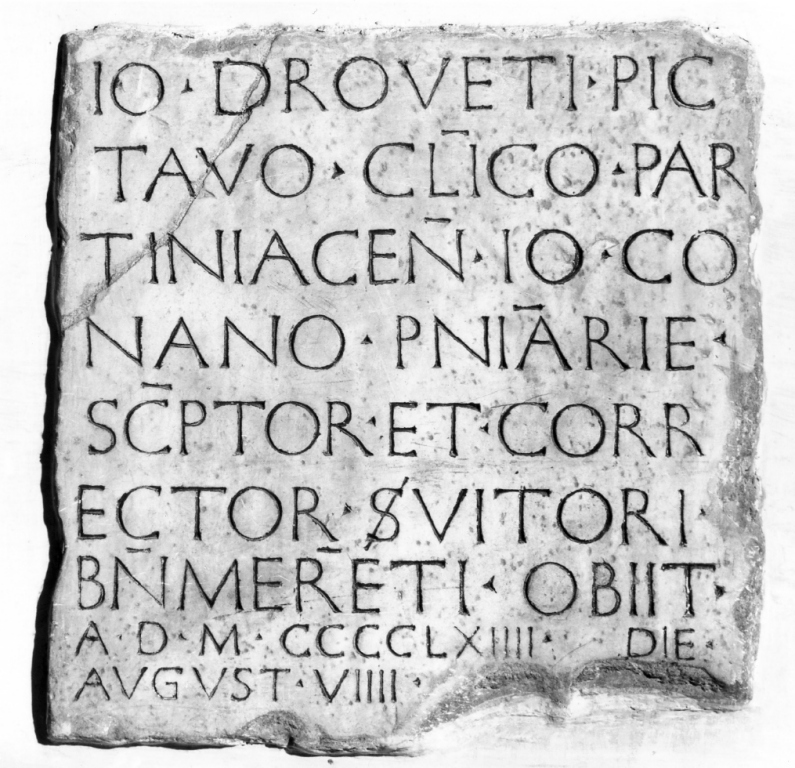 IO · DROVETI · PIC
TAVO · CL̄ICO · PAR
TINIACEN̄ · IO · CO
NANO · PNIĀRIE ·
SC̄PTOR · ET · CORR
ECTOR · S̸VITORI ·
BN̄MER̄ETI · OBIIT ·
A · D · M · CCCCLXIIII · DIE ·
AVGVST · VIIII ·